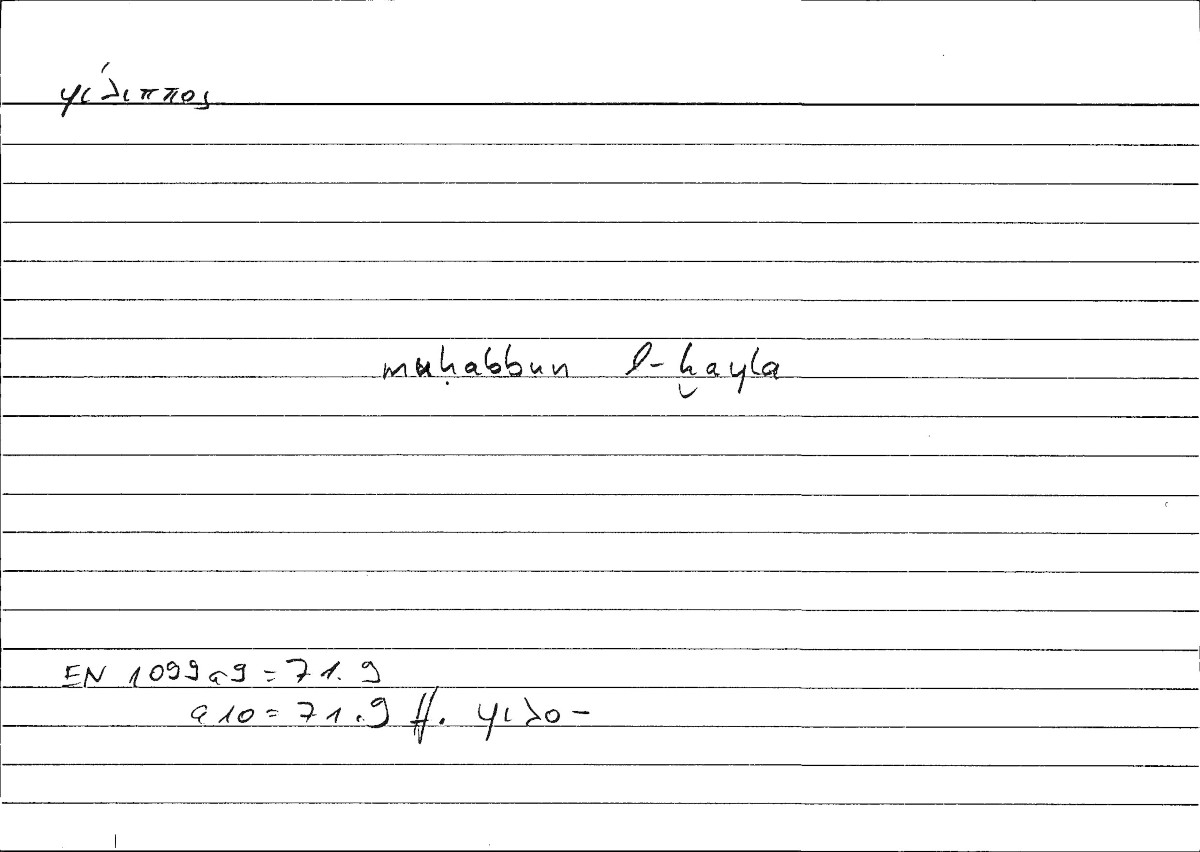 φίλιππος
muḥabbun l-ḫayla
EN 1099a9 = 71.9
a10 = 71.9 ff. φιλο-